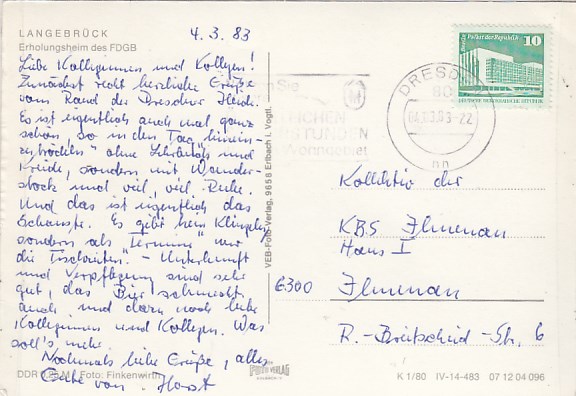 LANGEBRÜCK
Erholungsheim des FDGB
4.3.83
Liebe Kolleginnen und Kollegen!
Zunächst recht herzliche Grüße
vom Rand der Dresdner Heide.
Es ist eigentlich auch mal ganz
schön, so in den Tag "hinein-
zutrödeln" ohne Lehrbuch und
Kreide, sondern mit Wander-
stock und viel, viel Ruhe.
Und das ist eigentlich das
Schönste. Es gibt kein Klingeln,
sondern als "Termine" nur
die Tischzeiten. - Unterkunft
und Verpflegung sind sehr
gut, das Bier schmeckt
auch und dazu noch liebe
Kolleginnen und Kollegen. Was
soll's mehr.
Nochmals liebe Grüße, alles
Gute von Horst
DDR 0,25 M Foto: Finkenwirth
VEB-Foto-Verlag, 9656 Erlbach i. Vogtl.
FOTO VERLAG
STUNDEN
Wohngebiet
DRESDEN
80
04.3.83-22
nn
Palast der Republik
10
DEUTSCHE DEMOKRATISCHE REPUBLIK
Kollektiv der
KBS Ilmenau
Haus I
6300 Ilmenau
R.-Breitscheid-Str. 6
K 1/80 IV-14-483 07 12 04 096